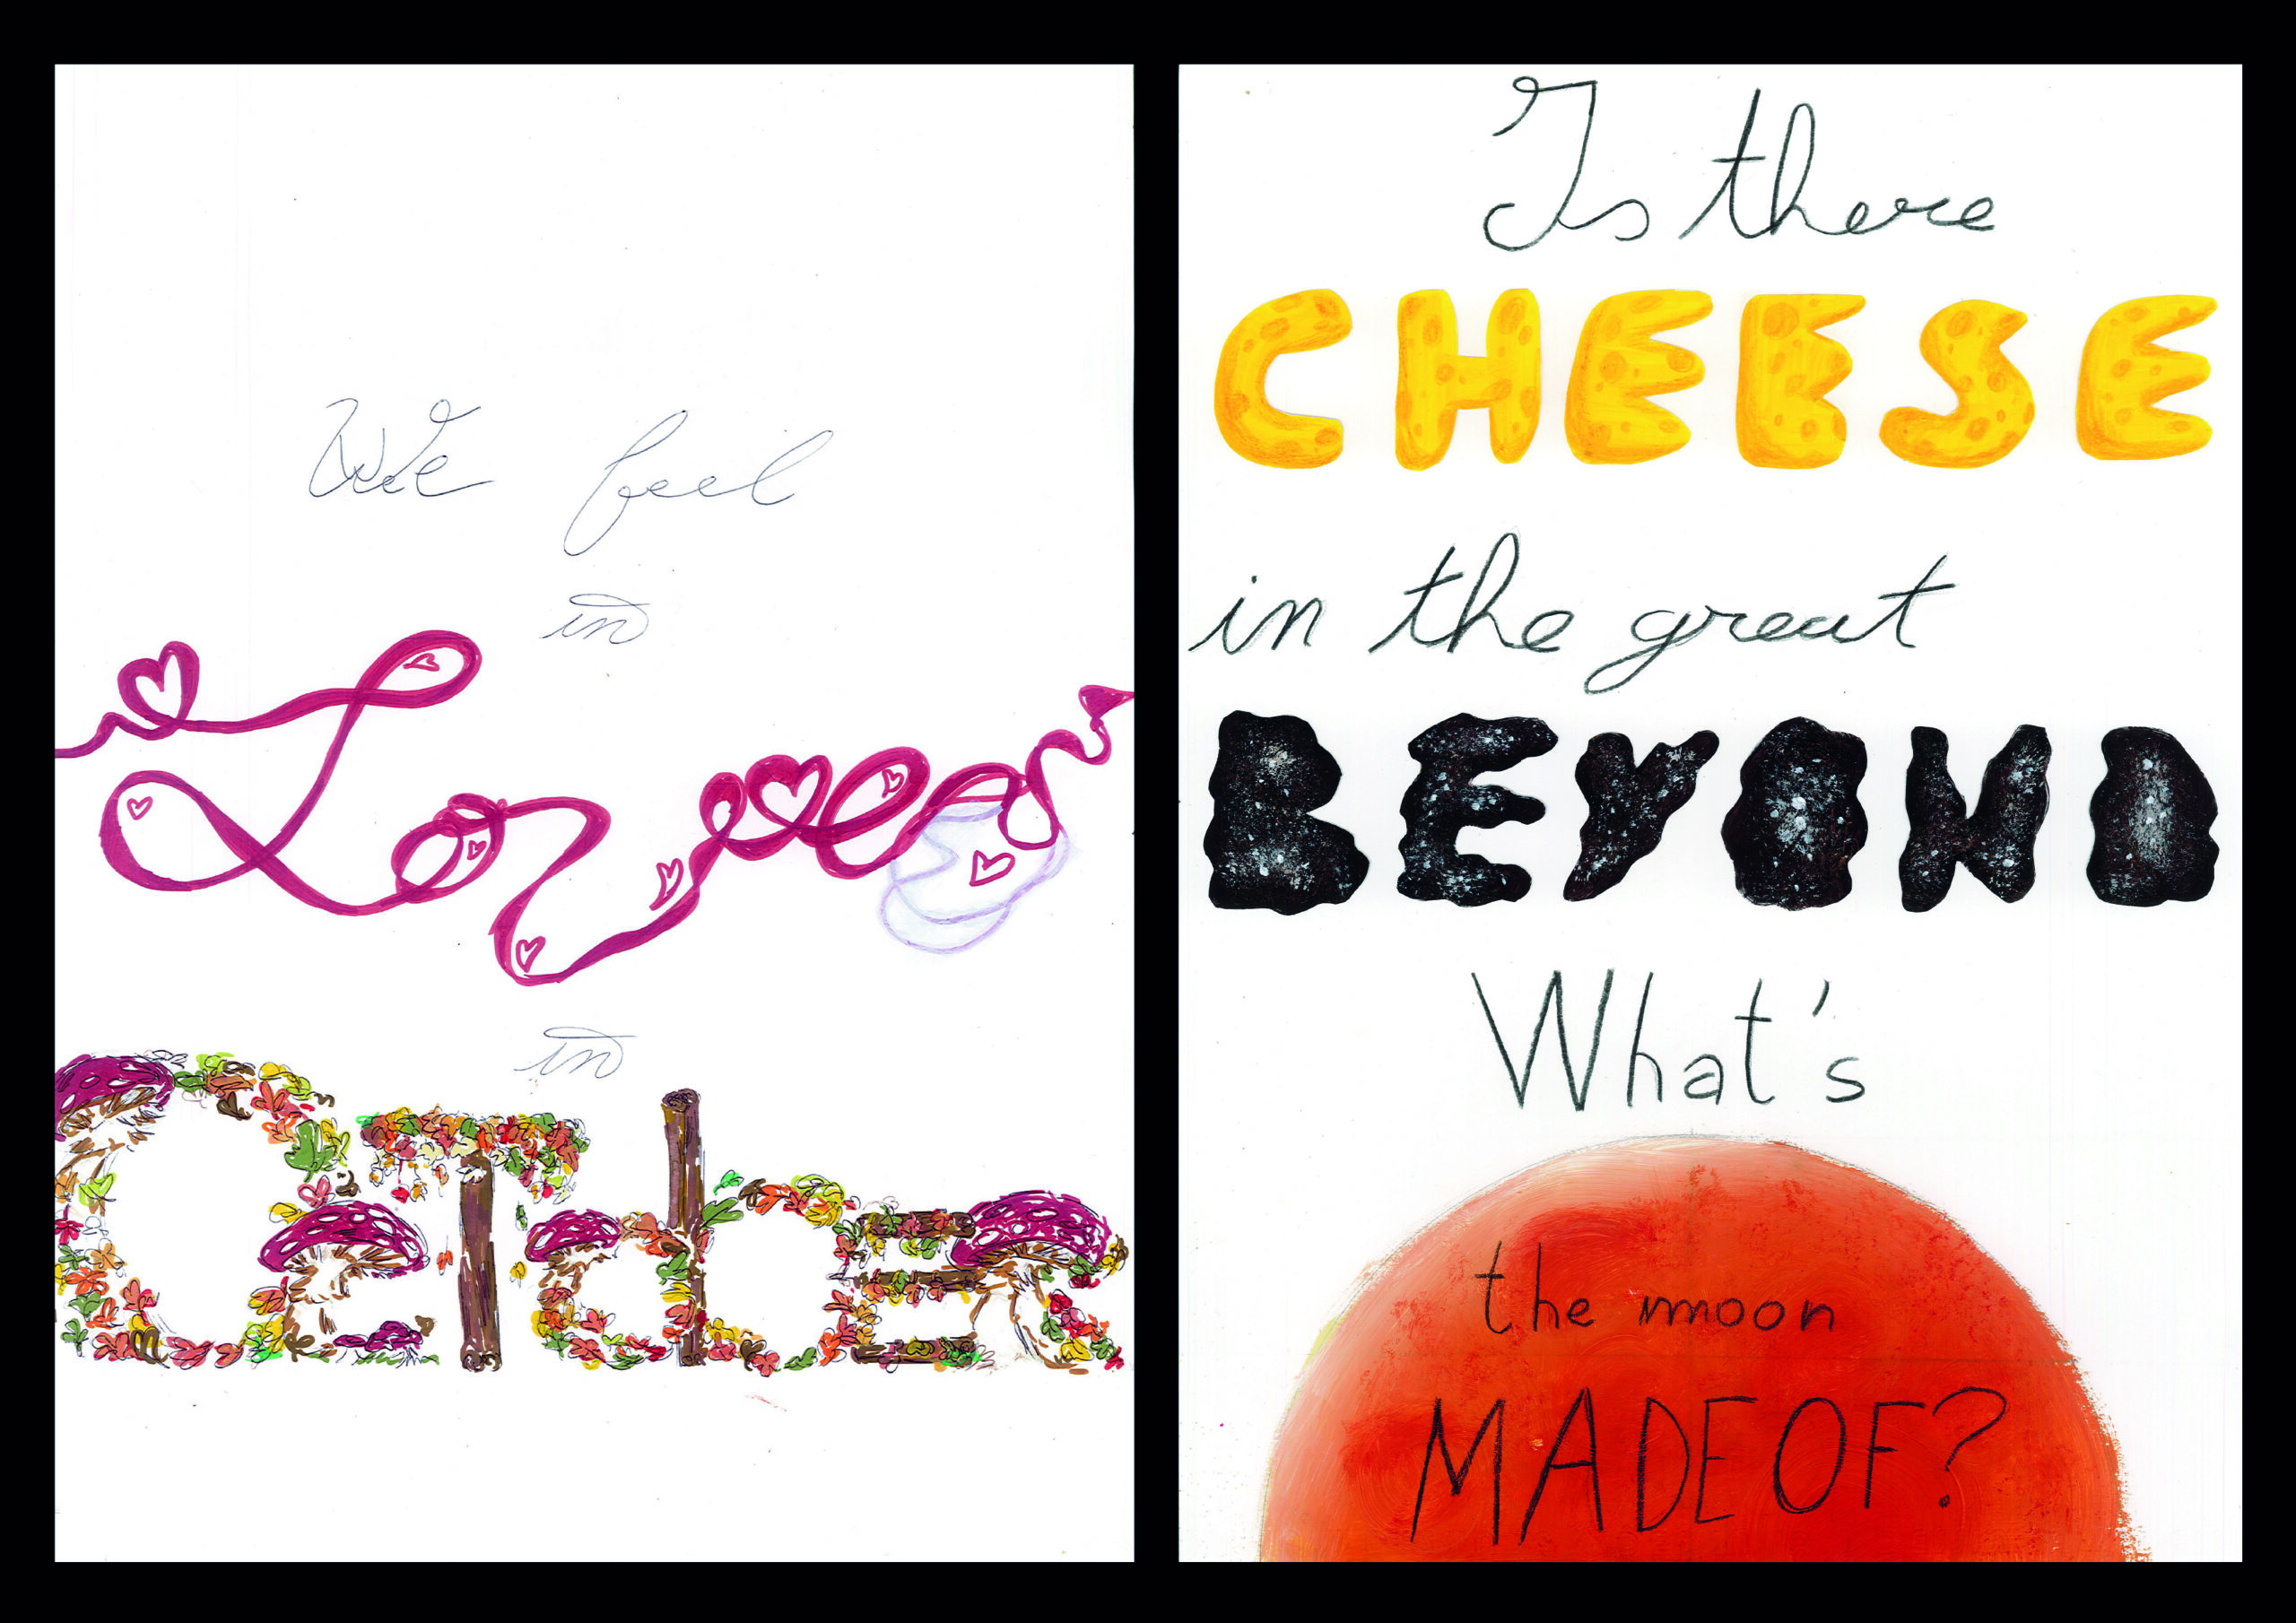 We feel
in
Love
in
OcTober
Is there
CHEESE
in the great
BEYOND
What's
the moon
MADE OF?